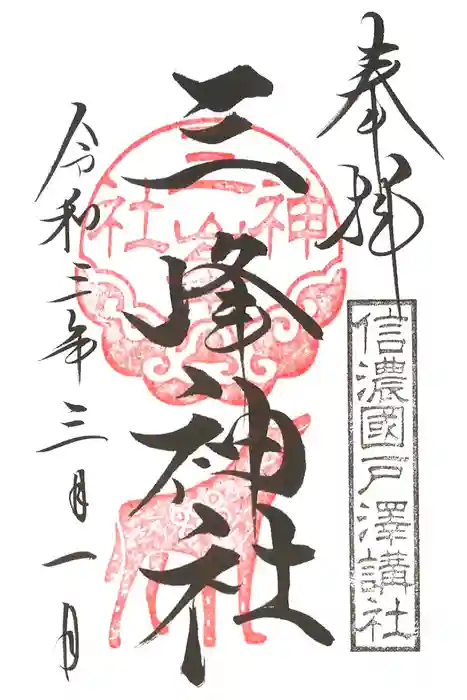 奉拝
信濃國戸澤講社
三峰神社
神社
令和三年三月一日